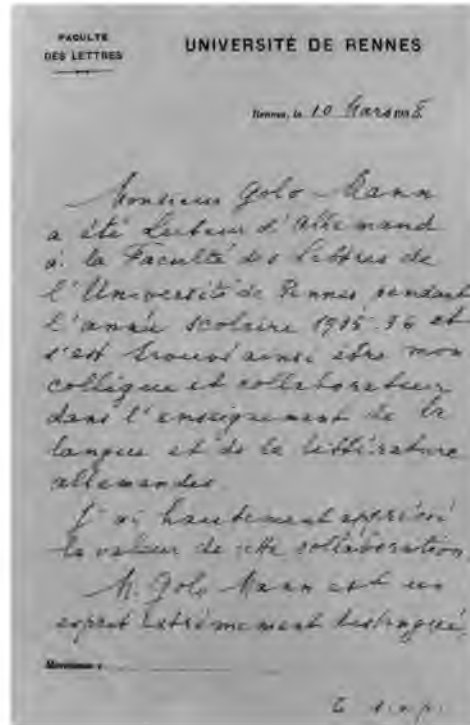 FACULTÉ
DES LETTRES
UNIVERSITÉ DE RENNES
Rennes, le 10 Mars 1938
Monsieur Golo Mann
a été Lecteur d'Allemand
à la Faculté des Lettres de
l'Université de Rennes pendant
l'année scolaire 1935-36 et
s'est trouvé ainsi être mon
collègue et collaborateur
dans l'enseignement de la
langue et de la littérature
allemandes.
J'ai hautement apprécié
la valeur de cette collaboration.
M. Golo Mann est un
esprit extrêmement distingué,